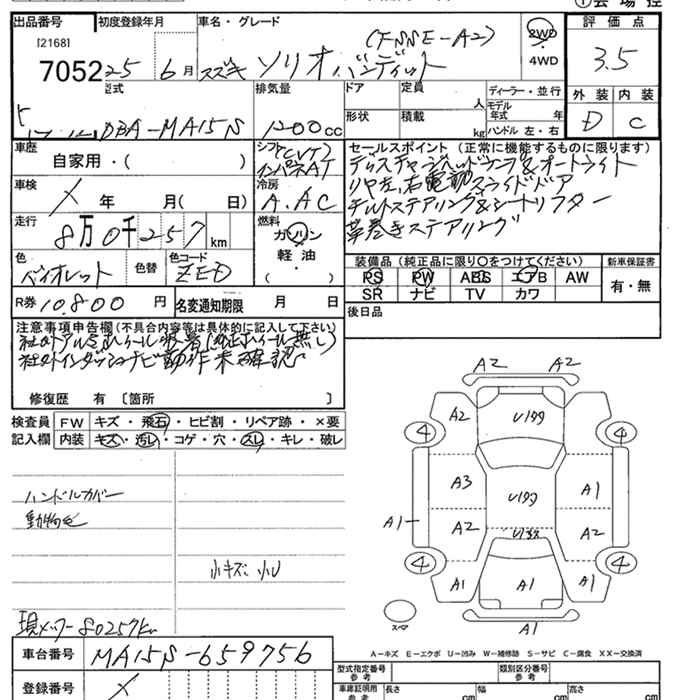 出品番号 初度登録年月 車名・グレード 評価点
[2168]
7052 25 6月 スズキ ソリオ バンディット (FNNE-A2) 2WD ・ 4WD 3.5
型式 排気量 ドア 定員 人 ディーラー・並行 外装 内装
DBA-MA15S 1200cc 形状 積載 kg モデル年式 年 ハンドル 左・右 D C
車歴 自家用・( ) シフト (CVT) インパネAT
セールスポイント(正常に機能するものに限ります)
ディスチャージヘッドランプ&オートライト
車検 × 年 月(日) 冷房 A.AC
リヤ左、右電動スライドドア
チルトステアリング&シートリフター
走行 8万0千257km 燃料 ガソリン 軽油・ ( )
革巻きステアリング
色 バイオレット 色替 色コード ZED
装備品(純正品に限り○をつけてください) 新車保証書
PS PW ABS エアB AW 有・無
SR ナビ TV カワ
R券 10.800円 名変通知期限 月 日
後日品
注意事項申告欄(不具合内容等は具体的に記入して下さい)
社外アルミホイール装着(純正ホイール無し)
社外インダッシュナビ動作未確認
修復歴 有 〔箇所 〕
検査員記入欄 FW キズ・飛石・ヒビ割・リペア跡・×要
内装 キズ・汚レ・コゲ・穴・スレ・キレ・破レ
ハンドルカバー
動物毛
小キズ、小U
現メーター80257km
A2 A2
A2 U1
4 4
A3 U1 A1
A1 A2 A2
4 4
A1 A1 A1
スペア A1
A-キズ E-エクボ U-凹み W-補修跡 S-サビ C-腐食 XX-交換済
車台番号 MA15S-659756
登録番号 ×
型式指定番号 参考 類別区分番号 参考
車庫証明用 参考 長さ cm 幅 cm 高さ cm